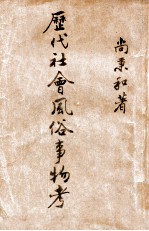 尚秉和著
歷代社會風俗事物考